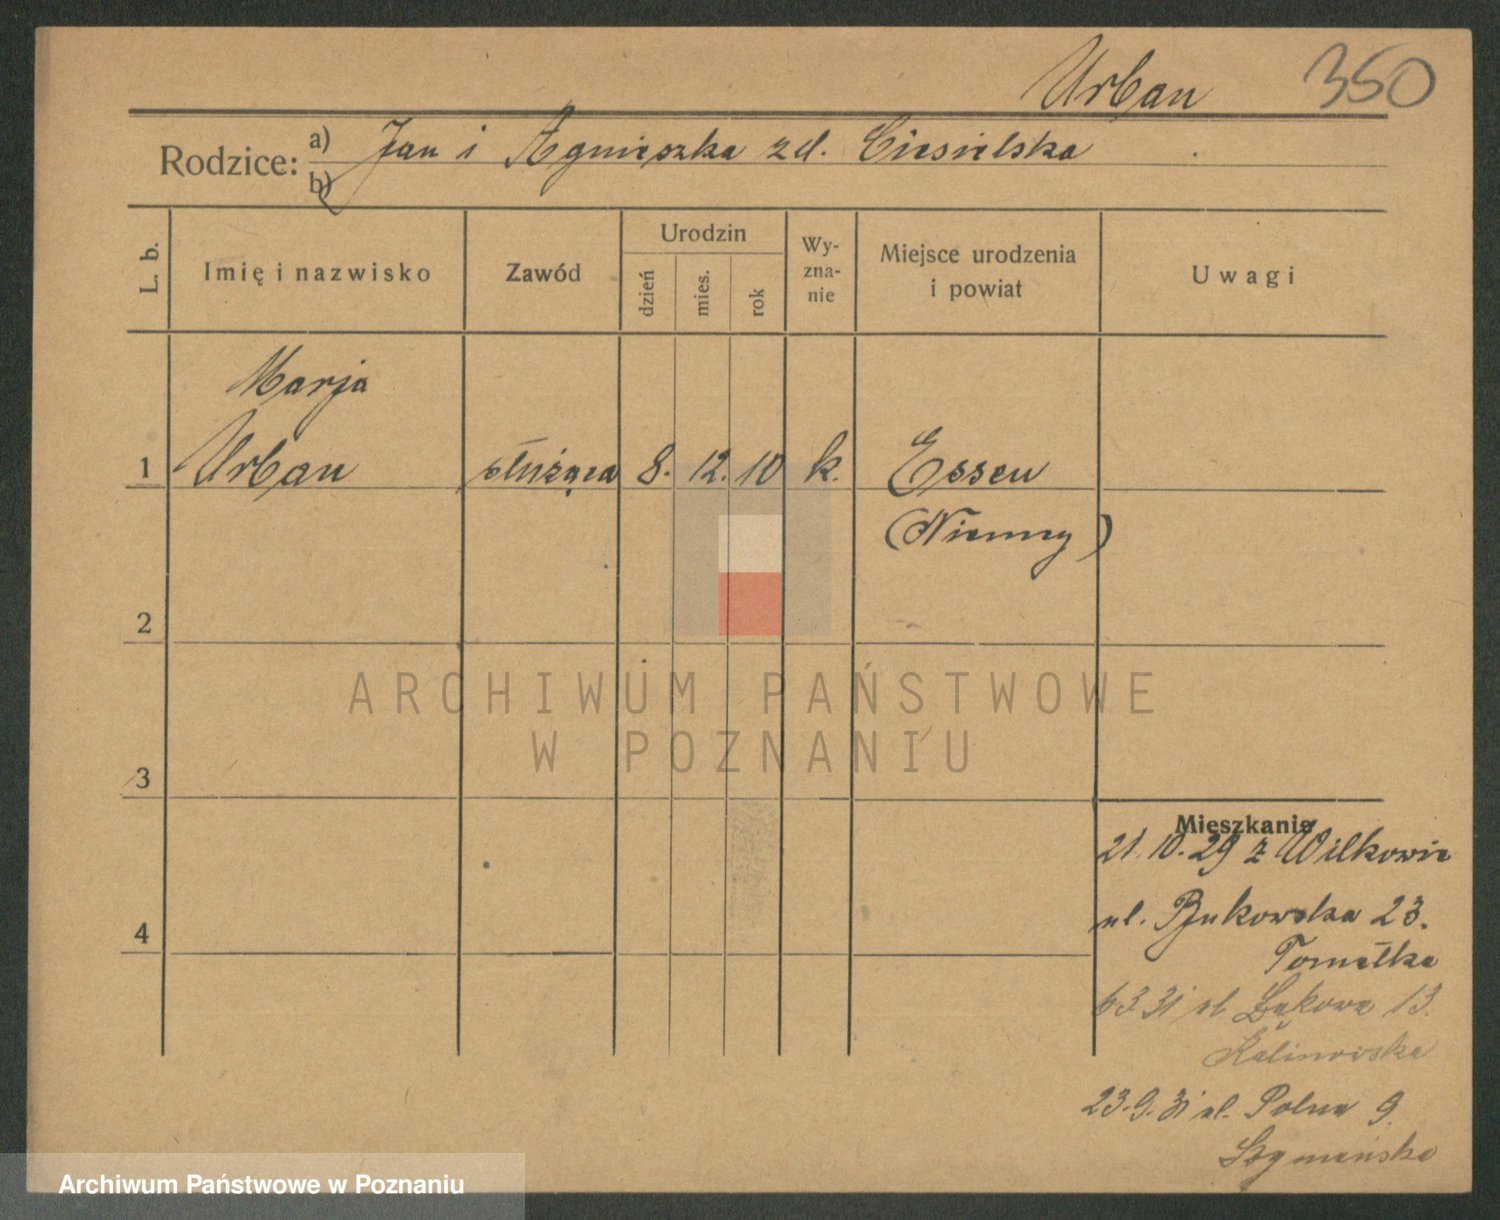 Urban 350
Rodzice: a) Jan i Agnieszka zd. Ciesielska
b)
L. b. Imię i nazwisko Zawód Urodzin dzień mies. rok Wy-zna-nie Miejsce urodzenia i powiat Uwagi
Marja
1 Urban służąca 8. 12. 10 k. Essen
(Niemcy)
2
ARCHIWUM PAŃSTWOWE
W POZNANIU
3
Mieszkanie
21.10.29 z Wilkowic
4 ul. Bukowska 23.
Tomałka
6 3 31 ul Łąkowa 13.
Kalinowska
23.9.31 ul. Polna 9.
Szymańska
Archiwum Państwowe w Poznaniu